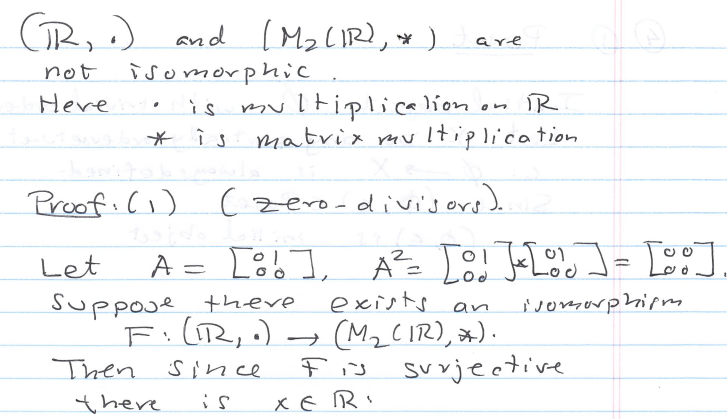 (ℝ, ·) and (M₂(ℝ), *) are
not isomorphic.
Here · is multiplication on ℝ
* is matrix multiplication
Proof: (1) (zero-divisors).
Let A = [0 1; 0 0], A² = [0 1; 0 0] * [0 1; 0 0] = [0 0; 0 0].
Suppose there exists an isomorphism
F: (ℝ, ·) → (M₂(ℝ), *).
Then since F is surjective
there is x ∈ ℝ: